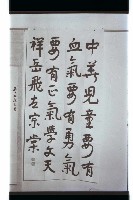 中華兒童要有
血氣要有勇氣
要有正氣學文天
祥岳飛左宗棠